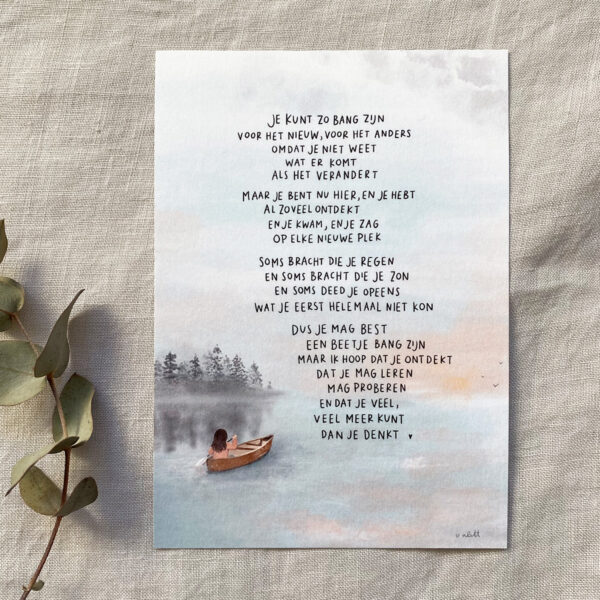 JE KUNT ZO BANG ZIJN
VOOR HET NIEUW, VOOR HET ANDERS
OMDAT JE NIET WEET
WAT ER KOMT
ALS HET VERANDERT
MAAR JE BENT NU HIER, EN JE HEBT
AL ZOVEEL ONTDEKT
EN JE KWAM, EN JE ZAG
OP ELKE NIEUWE PLEK
SOMS BRACHT DIE JE REGEN
EN SOMS BRACHT DIE JE ZON
EN SOMS DEED JE OPEENS
WAT JE EERST HELEMAAL NIET KON
DUS JE MAG BEST
EEN BEETJE BANG ZIJN
MAAR IK HOOP DAT JE ONTDEKT
DAT JE MAG LEREN
MAG PROBEREN
EN DAT JE VEEL,
VEEL MEER KUNT
DAN JE DENKT ♥